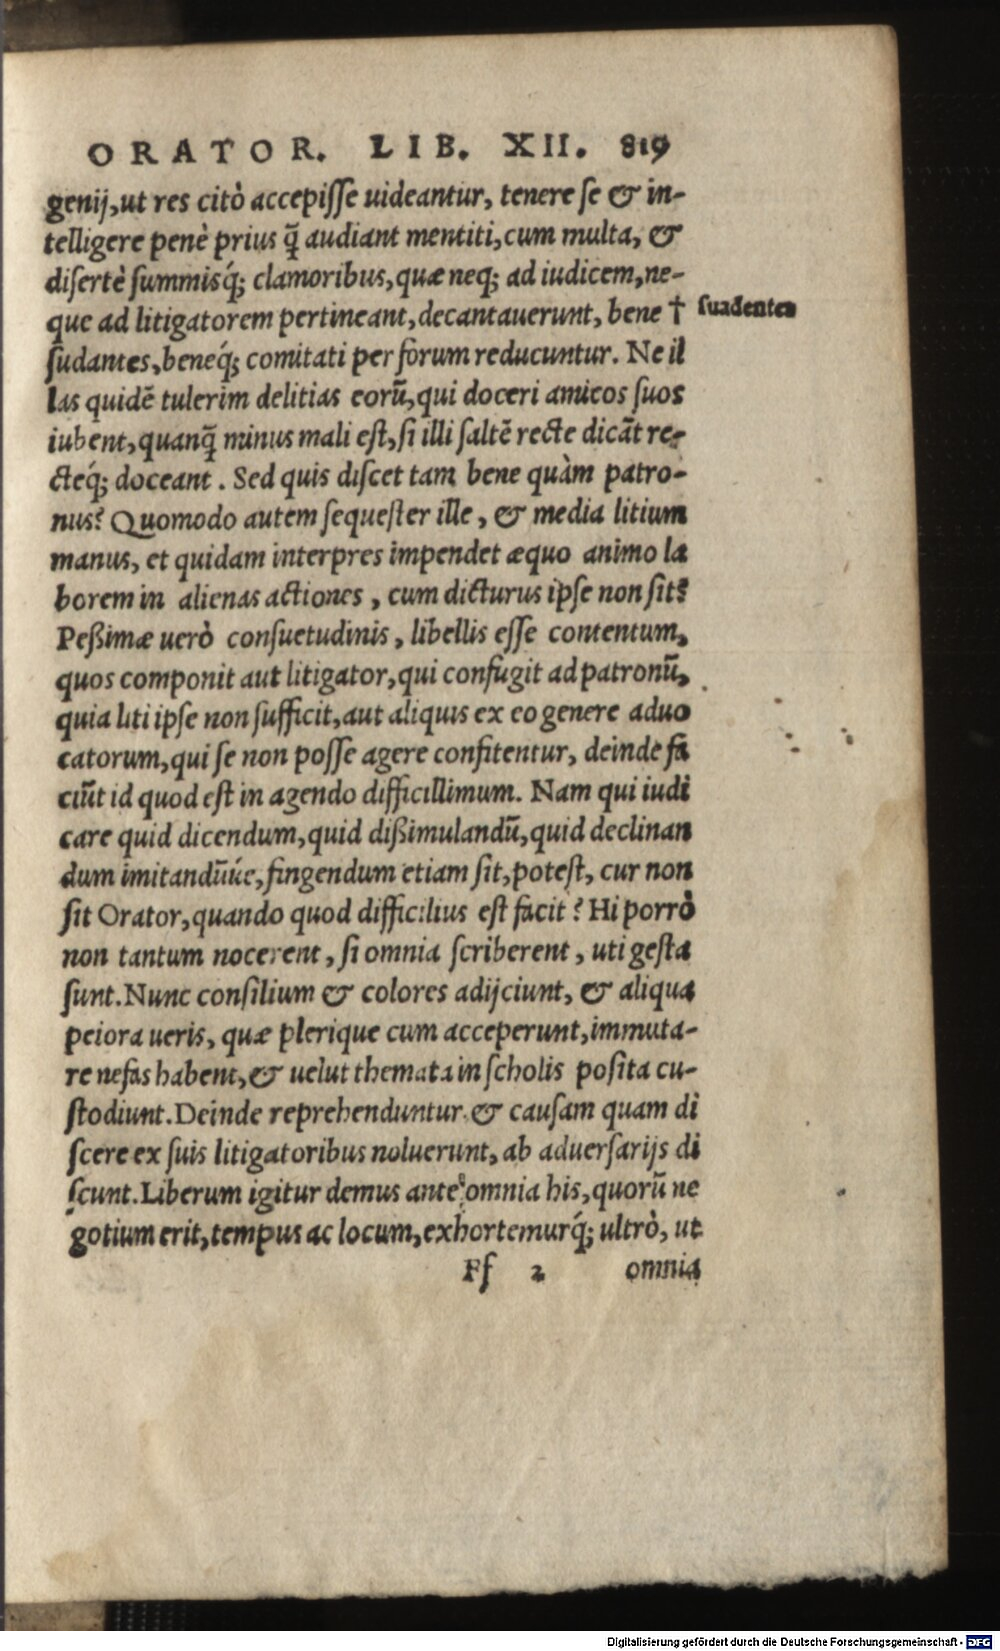 ORATOR. LIB. XII. 819
genij, ut res citò accepiſſe uideantur, tenere ſe & in-
telligere penè prius q̃ audiant mentiti, cum multa, &
diſertè ſummisq́; clamoribus, quæ neq; ad iudicem, ne-
que ad litigatorem pertineant, decantauerunt, bene † ſuadentes
ſudantes, beneq́; comitati per forum reducuntur. Ne il
las quidẽ tulerim delitias eorũ, qui doceri amicos ſuos
iubent, quanq̃ minus mali eſt, ſi illi ſaltẽ recte dicãt re-
cteq́; doceant. Sed quis diſcet tam bene quàm patro-
nus? Quomodo autem ſequeſter ille, & media litium
manus, et quidam interpres impendet æquo animo la
borem in alienas actiones, cum dicturus ipſe non ſit?
Peßimæ uerò conſuetudinis, libellis eſſe contentum,
quos componit aut litigator, qui confugit ad patronũ,
quia liti ipſe non ſufficit, aut aliquis ex eo genere aduo
catorum, qui ſe non poſſe agere confitentur, deinde fa
ciũt id quod eſt in agendo difficillimum. Nam qui iudi
care quid dicendum, quid dißimulandũ, quid declinan
dum imitandũúe, fingendum etiam ſit, poteſt, cur non
ſit Orator, quando quod difficilius eſt facit? Hi porrò
non tantum nocerent, ſi omnia ſcriberent, uti geſta
ſunt. Nunc conſilium & colores adijciunt, & aliqua
peiora ueris, quæ plerique cum acceperunt, immuta-
re nefas habent, & uelut themata in ſcholis poſita cu-
ſtodiunt. Deinde reprehenduntur & cauſam quam di
ſcere ex ſuis litigatoribus noluerunt, ab aduerſarijs di
ſcunt. Liberum igitur demus ante omnia his, quorũ ne
gotium erit, tempus ac locum, exhortemurq́; ultrò, ut
Ff 2 omnia
Digitalisierung gefördert durch die Deutsche Forschungsgemeinschaft - DFG